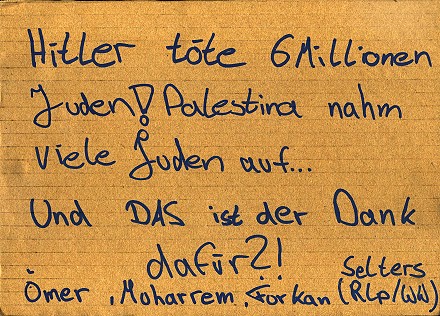 Hitler töte 6 Millionen
Juden! Palestina nahm
viele Juden auf...
Und DAS ist der Dank
dafür?!
Ömer, Moharrem, Forkan Selters (Rlp/WW)